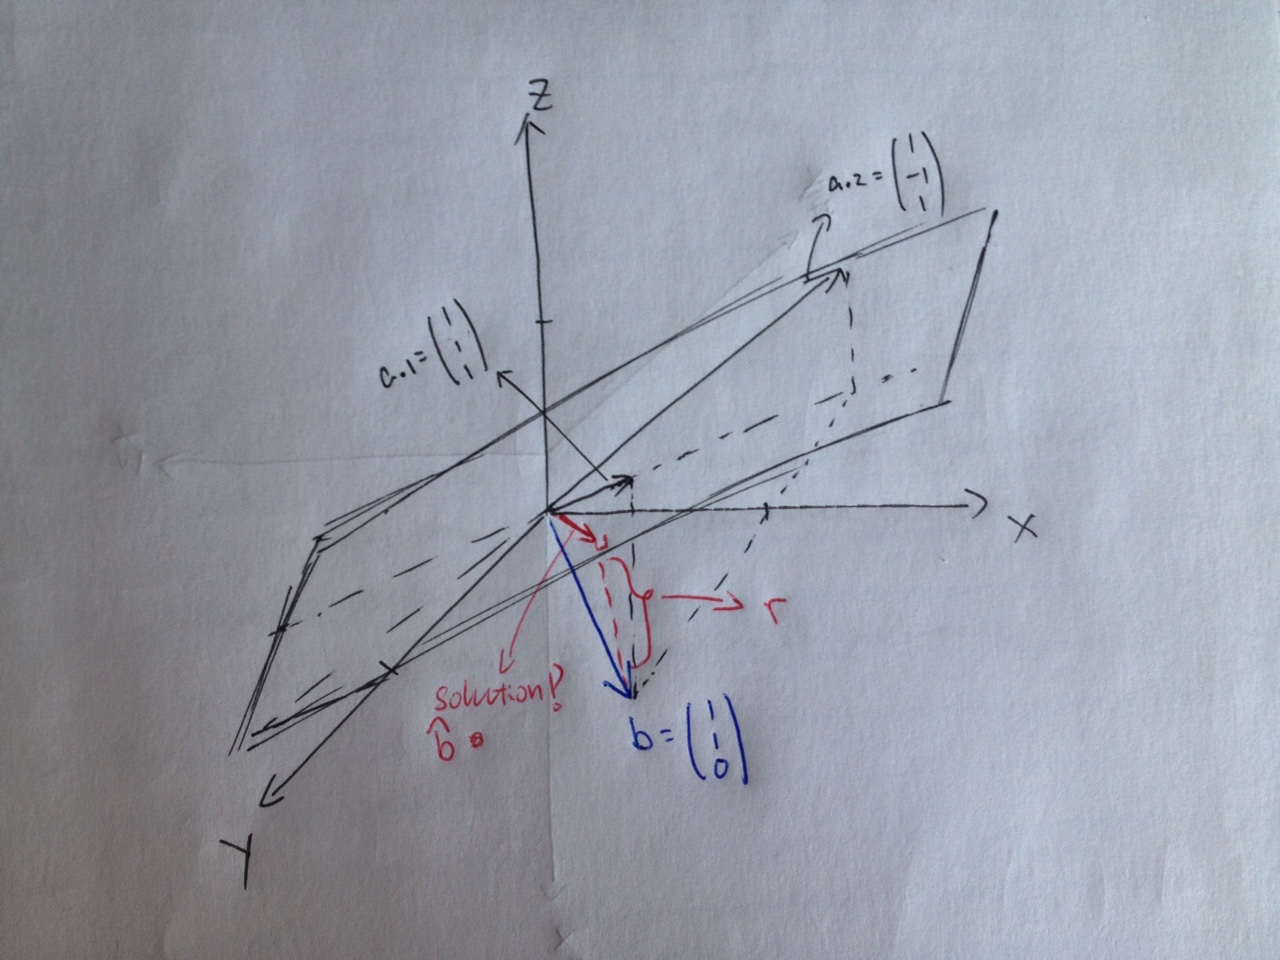 Z
a.2 = ( 1
-1
1 )
a.1 = ( 1
1
1 )
X
r
solution!?
b̂
b = ( 1
1
0 )
Y